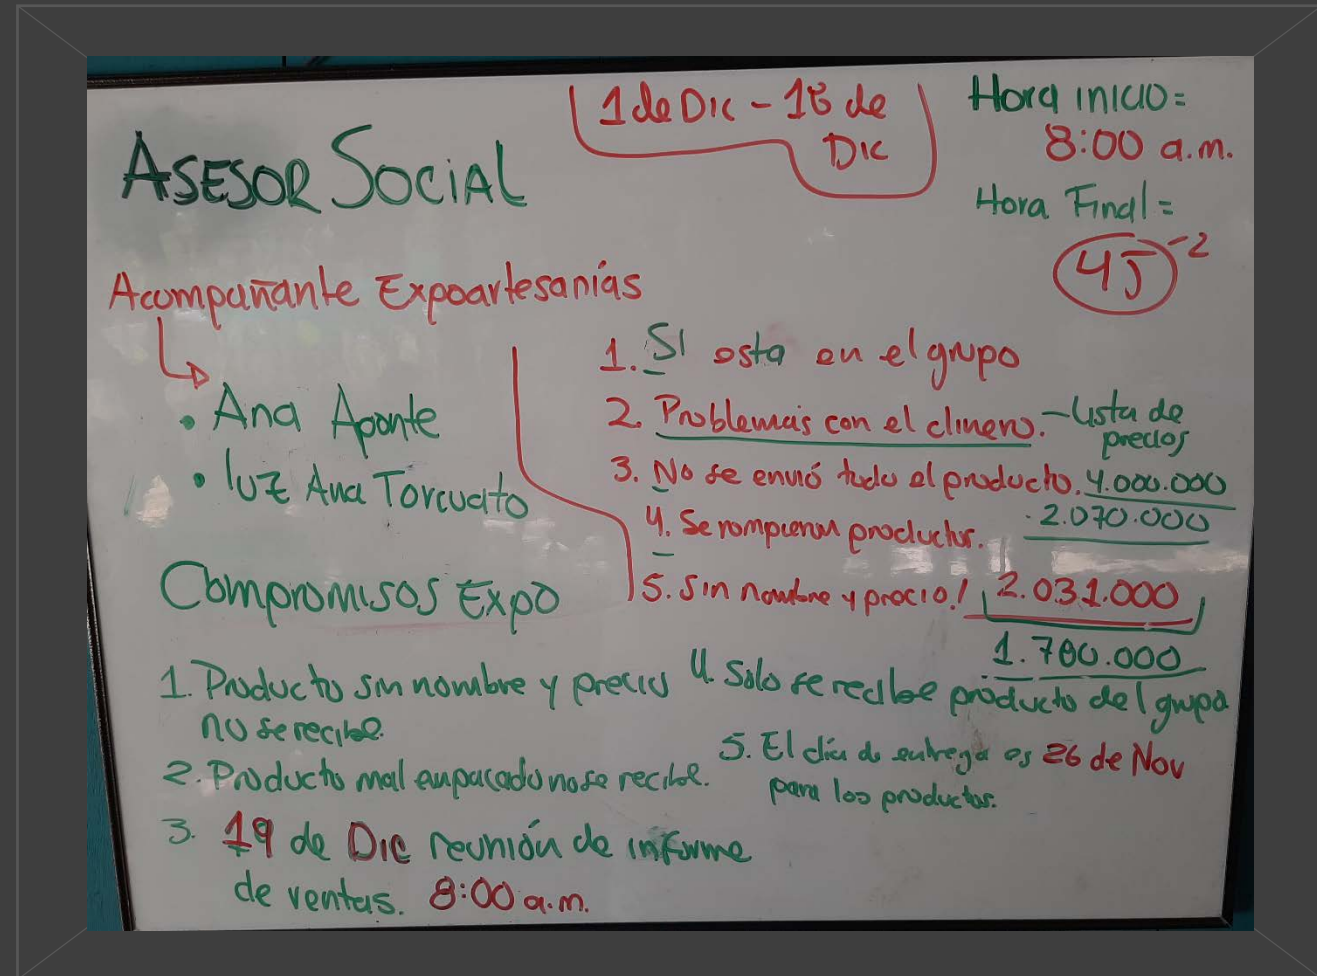 ASESOR SOCIAL
1 de Dic - 18 de
Dic
Hora inicio =
8:00 a.m.
Hora Final =
45 -2
Acompañante Expoartesanías
• Ana Aponte
• luz Ana Torcuato
1. SI esta en el grupo
2. Problemas con el dinero. - lista de
precios
3. No se envió todo el producto. 4.000.000
4. Se rompieron productos. 2.070.000
5. Sin nombre y precio! 2.031.000
1.780.000
Compromisos Expo
1. Producto sin nombre y precio
no se recibe.
2. Producto mal empacado no se recibe.
3. 19 de Dic reunión de informe
de ventas. 8:00 a.m.
4. Solo se recibe producto del grupo
5. El día de entrega es 26 de Nov
para los productos.